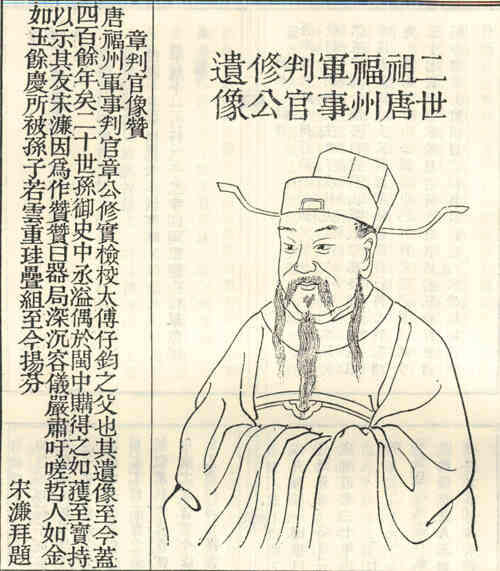 二世
祖唐
福州
軍事
判官
修公
遺像
章判官像贊
唐福州軍事判官章公修實檢校太傅仔鈞之父也其遺像至今蓋
四百餘年矣二十世孫御史中丞溢偶於閩中購得之如獲至寶持
以示其友宋濂因爲作贊贊曰器局深沉容儀嚴肅吁嗟哲人如金
如玉餘慶所被孫子若雲重珪疊組至今揚芬
宋濂拜題